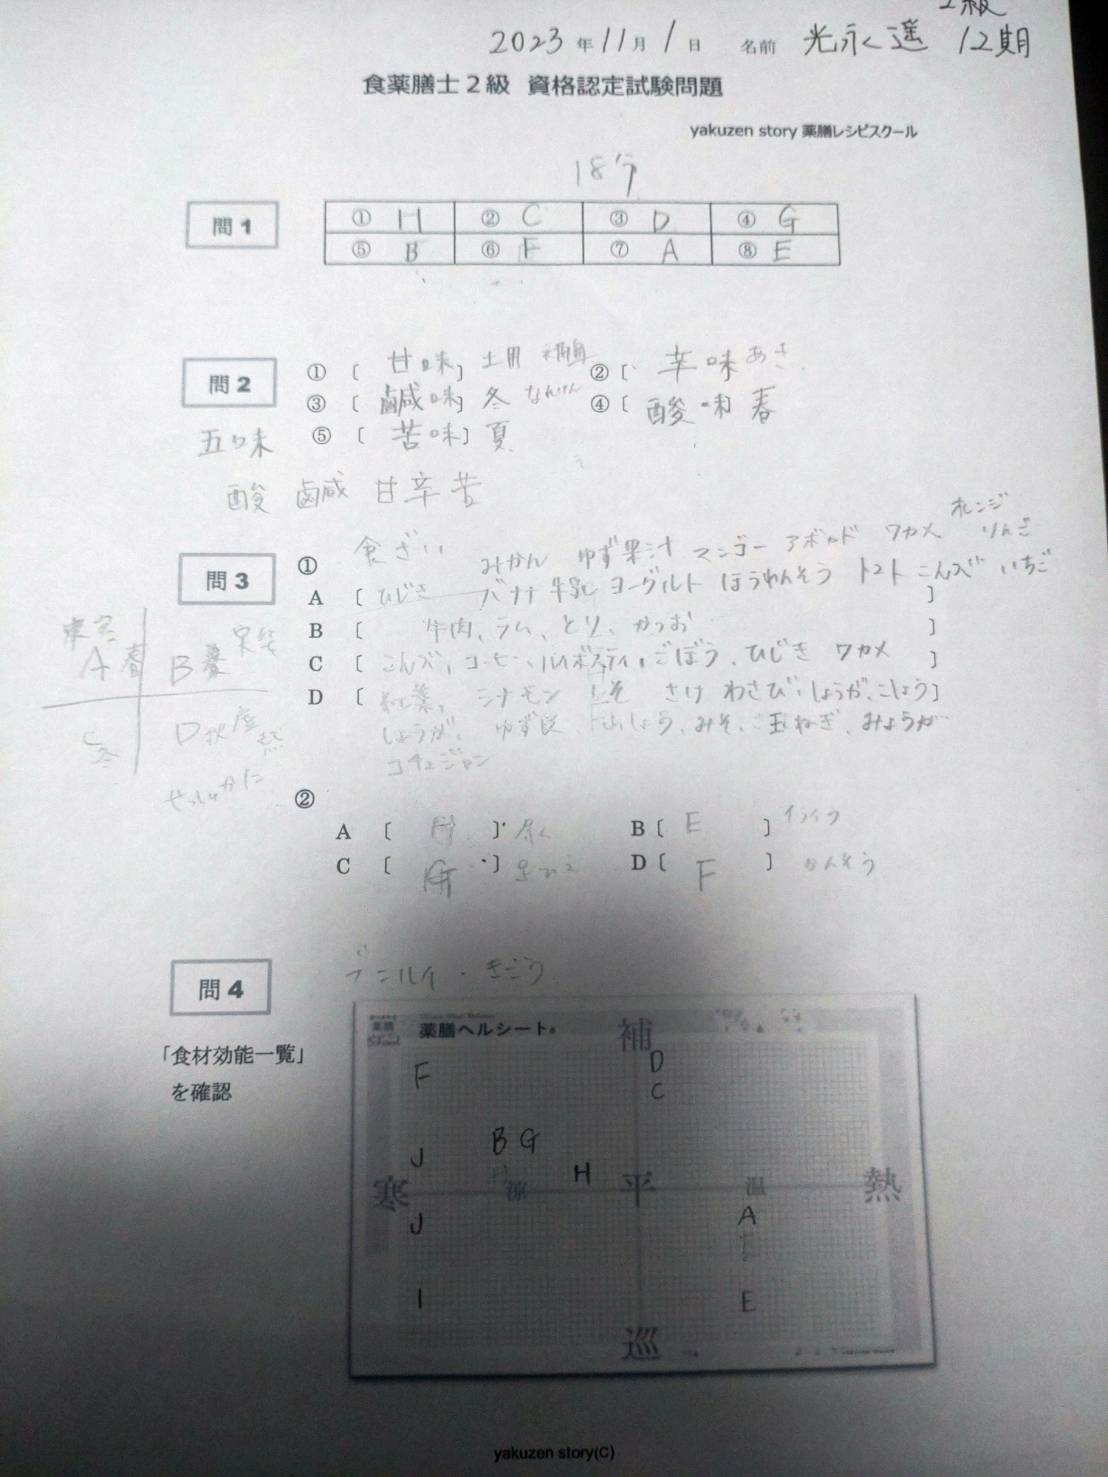 2級
2023年11月1日 名前 光永遥 12期
食薬膳士2級 資格認定試験問題
yakuzen story 薬膳レシピスクール
18分
問1
① H ② C ③ D ④ G
⑤ B ⑥ F ⑦ A ⑧ E
問2
① [ 甘味 ] 土用 ② [ 辛味 あき
③ [ 鹹味 ] 冬 ④ [ 酸味 春
五味 ⑤ [ 苦味 ] 夏
酸 鹹 甘 辛 苦
問3
① 食ざい
オレンジ
みかん ゆず果汁 マンゴー アボカド ワカメ りんご
A [ ひじき バナナ 牛乳 ヨーグルト ほうれんそう トマト こんぶ いちご ]
B [ 牛肉、ラム、とり、かつお ]
C [ こんぶ、コーヒー、ルイボスティ、ごぼう、ひじき ワカメ ]
D [ 紅茶、シナモン しそ さけ わさび、しょうが、こしょう ]
しょうが、ゆず皮、みそ、玉ねぎ、みょうが
コチュジャン
A 春 B 夏
C 冬 D 秋
②
A [ ] B [ E ] イライラ
C [ G ] D [ F ] かんそう
問4
「食材効能一覧」
を確認
薬膳ヘルシート®
補
F D
C
B G
J H
寒 涼 平 温 熱
J A
I E
巡
yakuzen story(C)